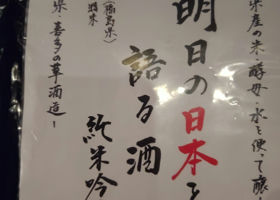 産の米・酵母・水を使って醸
明日の日本を
語る酒
純米吟
(福島県)
県・喜多の華酒造